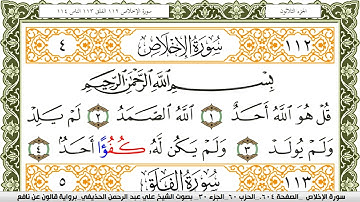 الجزء الثلاثون
سورة الإخلاص ١١٢ الفلق ١١٣ الناس ١١٤
١١٢ سُورَةُ الْإِخْلَاصِ ٤
بِسْمِ اللَّهِ الرَّحْمَٰنِ الرَّحِيمِ
قُلْ هُوَ اللَّهُ أَحَدٌ ١ اللَّهُ الصَّمَدُ ٢ لَمْ يَلِدْ
وَلَمْ يُولَدْ ٣ وَلَمْ يَكُن لَّهُ كُفُؤًا أَحَدٌ ٤
١١٣ سُورَةُ الْفَلَقِ ٥
سورة الإخلاص - الصفحة ٦٠٤ - الحزب ٦٠ - الجزء ٣٠ - بصوت الشيخ علي عبد الرحمن الحذيفي - برواية قالون عن نافع